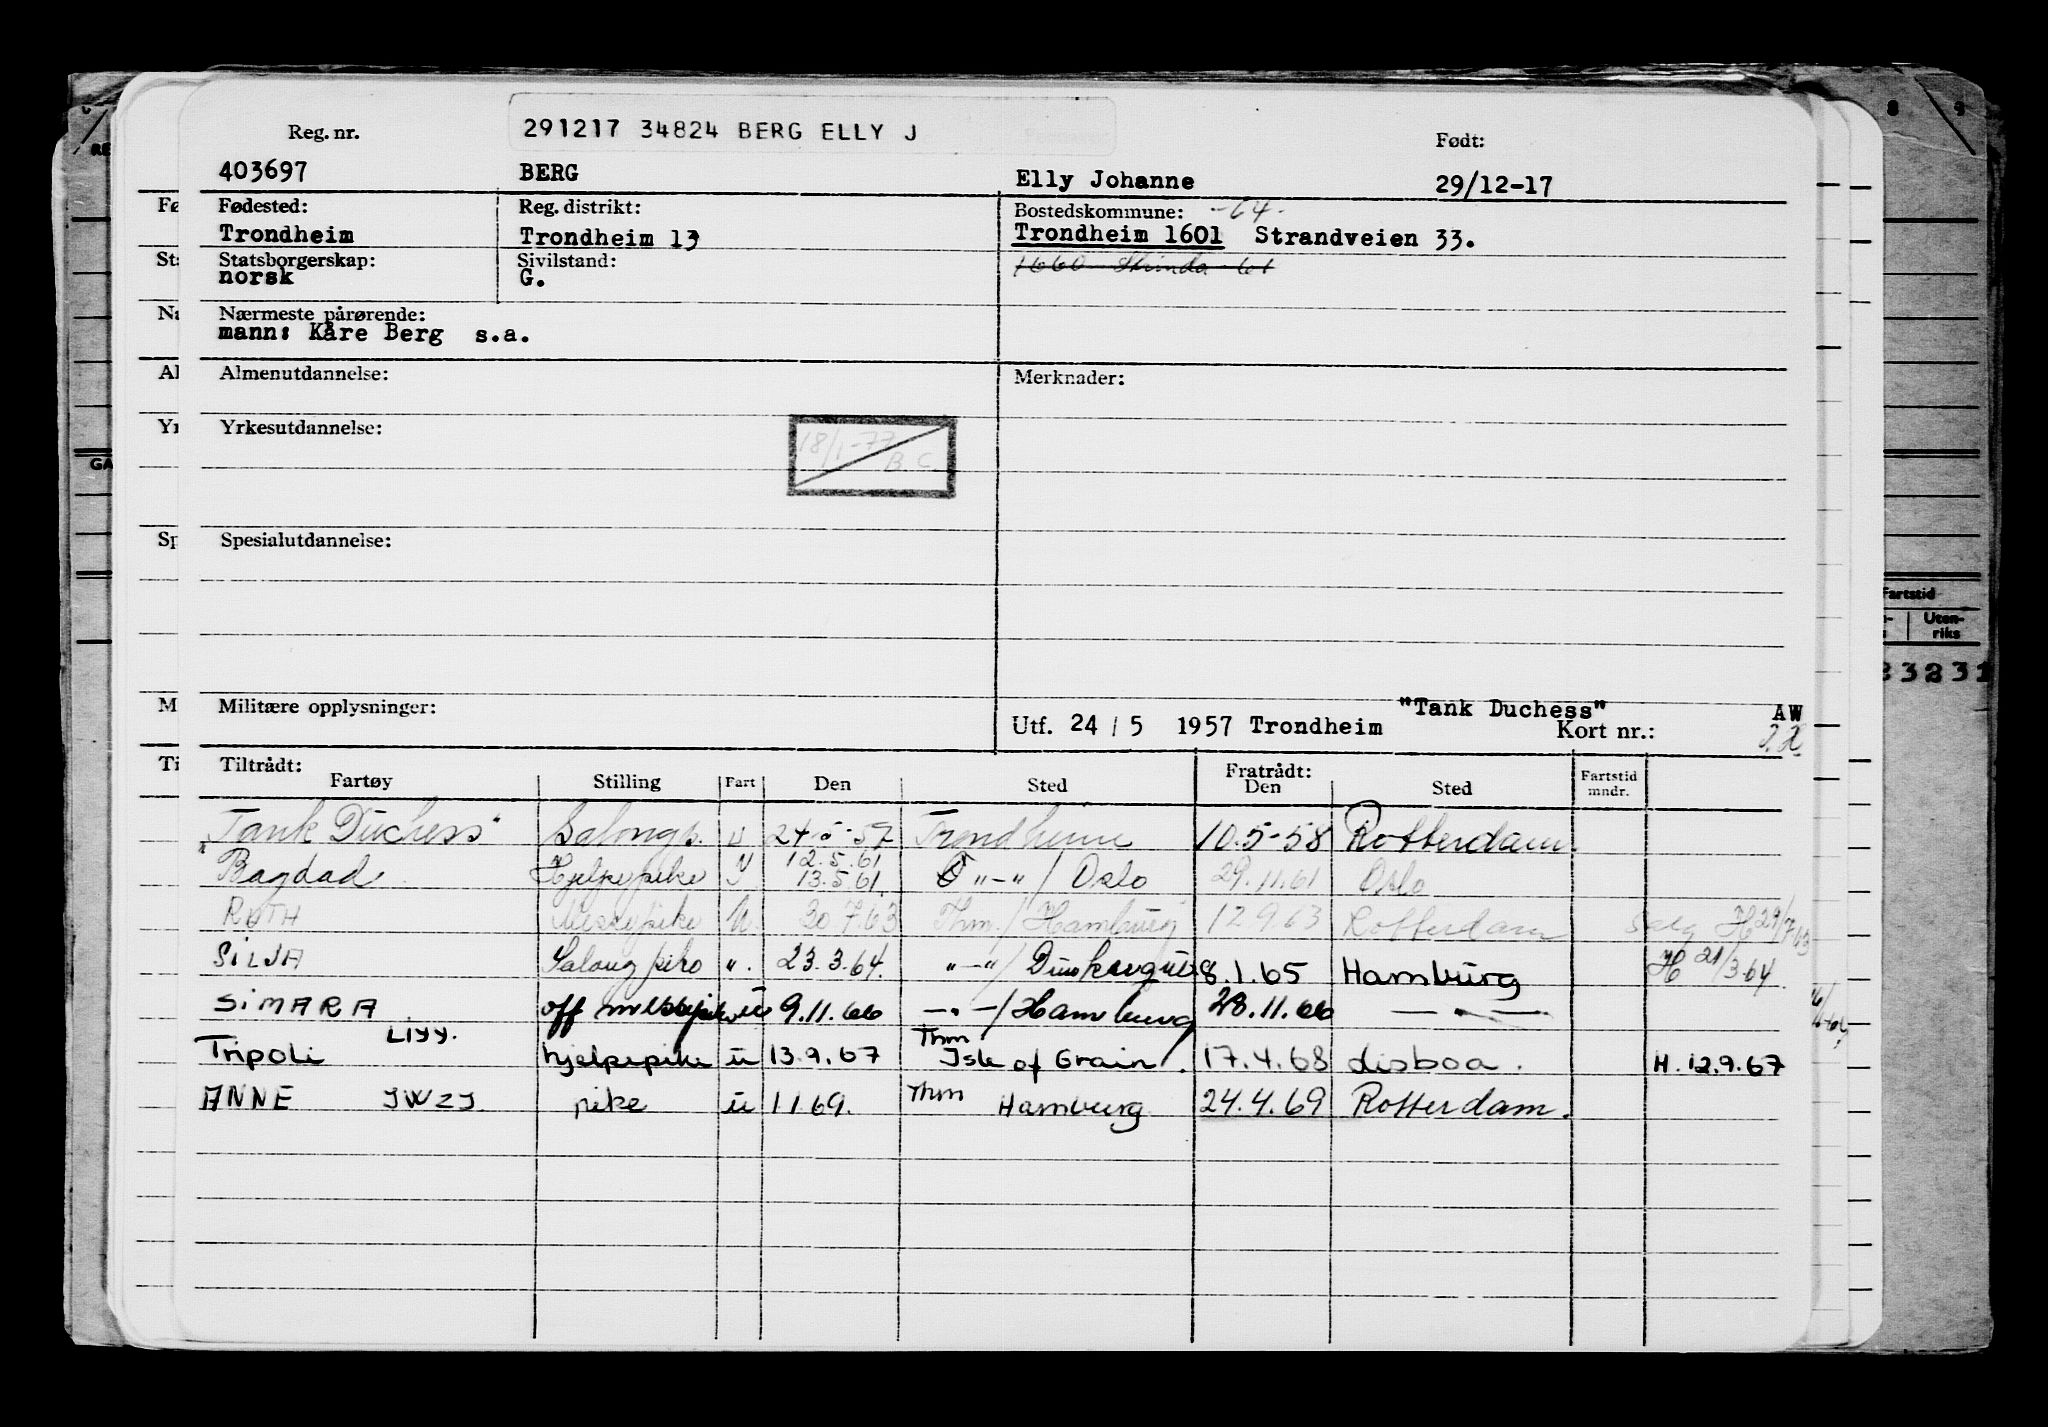 291217 34824 BERG ELLY J
Reg. nr. Født:
403697 BERG Elly Johanne 29/12-17
Fødested: Reg. distrikt: Bostedskommune: -64-
Trondheim Trondheim 13 Trondheim 1601 Strandveien 33.
Statsborgerskap: Sivilstand: 1660 Strinda 61
norsk G.
Nærmeste pårørende:
mann: Kåre Berg s.a.
Almenutdannelse: Merknader:
Yrkesutdannelse:
18/1-77 B C
Spesialutdannelse:
Militære opplysninger: "Tank Duchess" AW
Utf. 24 / 5 1957 Trondheim Kort nr.:
Tiltrådt: Fratrådt:
Fartøy Stilling Fart Den Sted Den Sted Fartstid mndr.
"Tank Duchess" Salongp. U 24.5-57 Trondheim 10.5-58 Rotterdam
12.5.61
Bagdad Hjelpepike 13.5.61 "-" / Oslo 29.11.61 Oslo
RUTH Messepike U. 30.7.63 Thm. / Hamburg 12.9.63 Rotterdam Salg H 29/7-63
SILJA Salongpike ". 23.3.64. "-" / Dunkerque 8.1.65 Hamburg H 21/3 64
SIMARA off messepike u 9.11.66 -"-/ Hamburg 28.11.66 - " -
Tripoli LIYY. hjelpepike u 13.9.67 Thm Isle of Grain. 17.4.68 Lisboa. H. 12.9.67
ANNE JWZJ pike u 1 1 69. Thm Hamburg 24.4.69 Rotterdam.
Fartstid
Uten-
riks